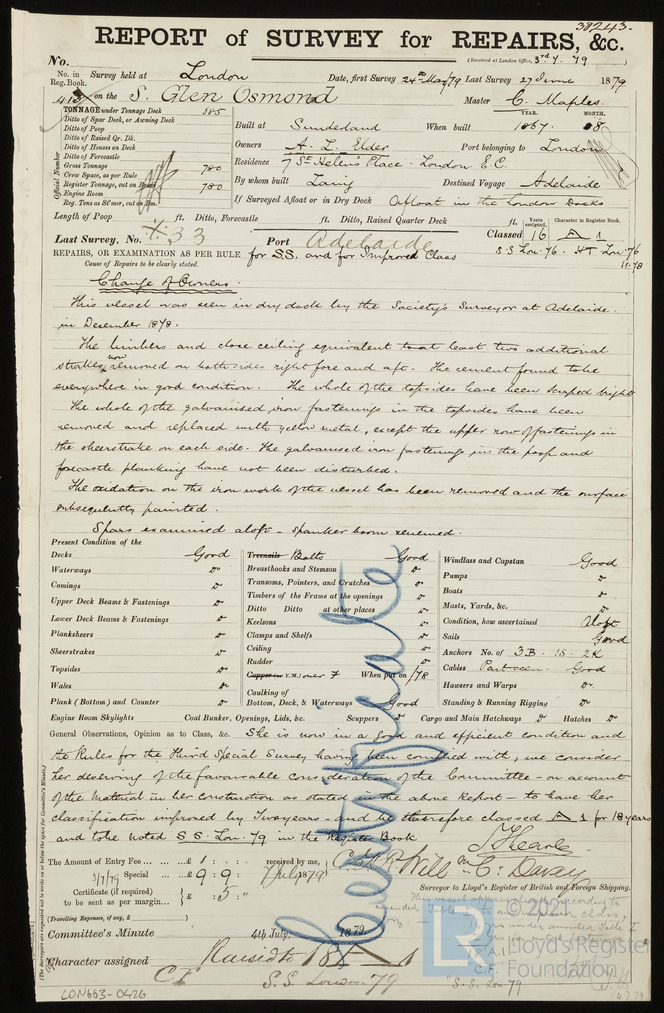 38243.
REPORT of SURVEY for REPAIRS, &c.
No.
(Received at London Office, 3rd 7. 79
No. in Reg. Book.
Survey held at London Date, first Survey 24th May/79 Last Survey 27 June 1879
on the S. Glen Osmond Master C. Maples.
TONNAGE under Tonnage Deck 785
Ditto of Spar Deck, or Awning Deck
Ditto of Poop
Ditto of Raised Qr. Dk.
Ditto of Houses on Deck
Ditto of Forecastle
Gross Tonnage 780
Crew Space, as per Rule
Register Tonnage, cut on Beam 780
Engine Room
Reg. Tons as St'mer, cut on Bm.
Official Number
YEAR. MONTH.
Built at Sunderland When built 1867. 08
Owners A. L. Elder Port belonging to London
Residence 7 St Helen's Place - London E.C.
By whom built Laing Destined Voyage Adelaide
If Surveyed Afloat or in Dry Dock Afloat in the London Docks
Length of Poop ft. Ditto, Forecastle ft. Ditto, Raised Quarter Deck ft.
Years assigned. Character in Register Book.
Last Survey, No. 33 Port Adelaide Classed 16 A 1
S S Lon. 76. HT Lon. 76
11-78
REPAIRS, OR EXAMINATION AS PER RULE for S.S. and for Improved Class
Cause of Repairs to be clearly stated.
Change of Owners.
This vessel was seen in dry dock by the Society's Surveyor at Adelaide
in December 1878.
The limbers and close ceiling equivalent to at least two additional
strakes now removed on both sides right fore and aft. The cement found to be
everywhere in good condition. The whole of the topsides have been scraped bright
The whole of the galvanised iron fastenings in the topsides have been
removed and replaced with yellow metal, except the upper row of fastenings in
the sheerstrake on each side. The galvanised iron fastenings in the poop and
forecastle planking have not been disturbed.
The oxidation on the iron work of the vessel has been removed and the surface
subsequently painted.
Spars examined aloft - spanker boom renewed.
Present Condition of the
Decks Good
Waterways Do
Comings Do
Upper Deck Beams & Fastenings Do
Lower Deck Beams & Fastenings Do
Planksheers Do
Sheerstrakes Do
Topsides Do
Wales Do
Plank (Bottom) and Counter Do
Treenails Bolts Good
Breasthooks and Stemson Do
Transoms, Pointers, and Crutches Do
Timbers of the Frame at the openings Do
Ditto Ditto at other places Do
Keelsons Do
Clamps and Shelfs Do
Ceiling Do
Rudder Do
Copper (or Y.M.) over F When put on /78
Caulking of
Bottom, Deck, & Waterways Good
Windlass and Capstan Good
Pumps Do
Boats Do
Masts, Yards, &c. Do
Condition, how ascertained Aloft
Sails Good
Anchors No. of 3B. 1S. 2K
Cables Part seen - Good
Hawsers and Warps Do.
Standing & Running Rigging Do
Engine Room Skylights Coal Bunker, Openings, Lids, &c. Scuppers Do Cargo and Main Hatchways Do Hatches Do
General Observations, Opinion as to Class, &c. She is now in a good and efficient condition and
the Rules for the third Special Survey having been complied with, we consider
her deserving of the favourable consideration of the Committee - on account
of the material in her construction as stated in the above Report - to have her
classification improved by Two years - and be therefore classed A 1 for 18 years
and to be noted S S. Lon. 79 in the Register Book
Certificate
The Amount of Entry Fee £ 1 : : received by me,
3/7/79 Special £ 9 : 9 : 7 July 1879
Certificate (if required) to be sent as per margin £ : 5 : "
(Travelling Expenses, if any, £ )
Surveyor to Lloyd's Register of British and Foreign Shipping.
Committee's Minute 4th July, 1879
Character assigned Raised to 18 A 1
C F S. S. London 79
A. 1
C. F.
S.S. Lon 79
© 2021
LR
Lloyd's Register
Foundation
LON663-0426